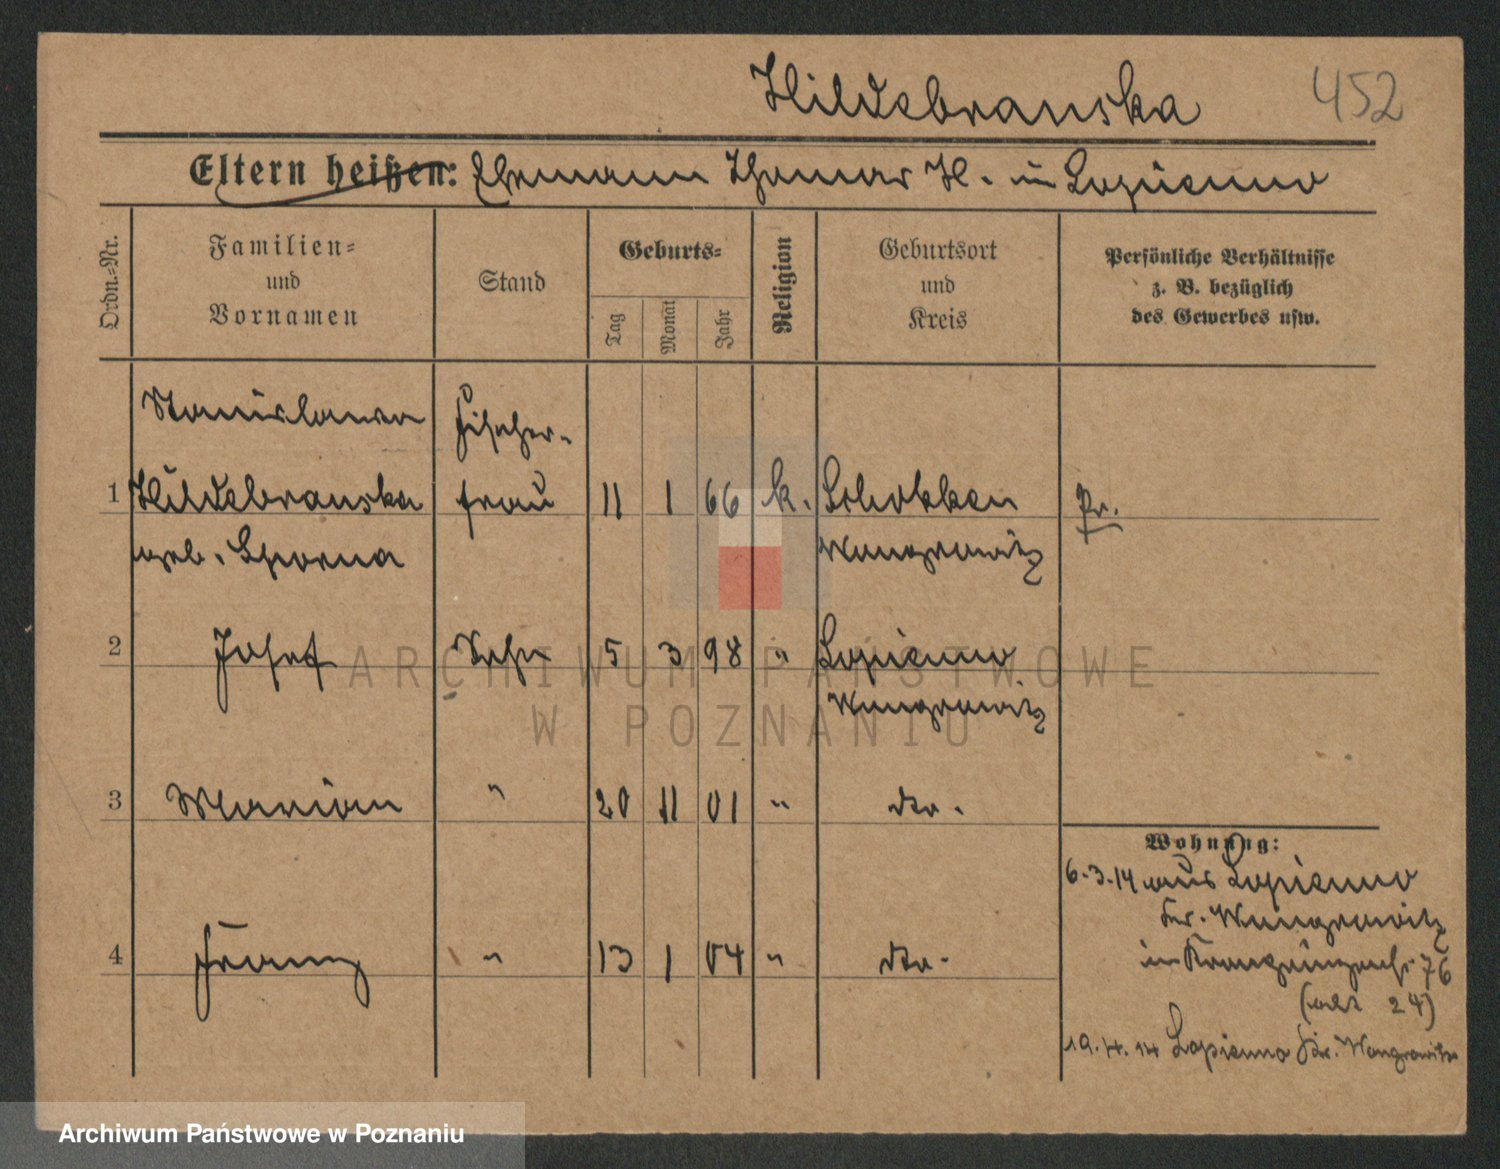 Hildebranska 452
Eltern heißen: Ehemann Thomas H. in Lopienno
Ordn.-Nr.
Familien-
und
Vornamen
Stand
Geburts-
Tag
Monat
Jahr
Religion
Geburtsort
und
Kreis
Persönliche Verhältnisse
z. B. bezüglich
des Gewerbes usw.
Stanislawa Fischer-
1 Hildebranska frau 11 1 66 k. Schokken Pr.
geb. Sporna Wongrowitz
2 Josef Sohn 5 3 98 " Lopienno
Wongrowitz
3 Marian " 20 11 01 " dto.
Wohnung:
6.3.14 aus Lopienno
Kr. Wongrowitz
4 Franz " 13 1 04 " dto.
in 76
(alt 24)
19.4.14 Lopienno Kr. Wongrowitz
ARCHIWUM PAŃSTWOWE
W POZNANIU
Archiwum Państwowe w Poznaniu